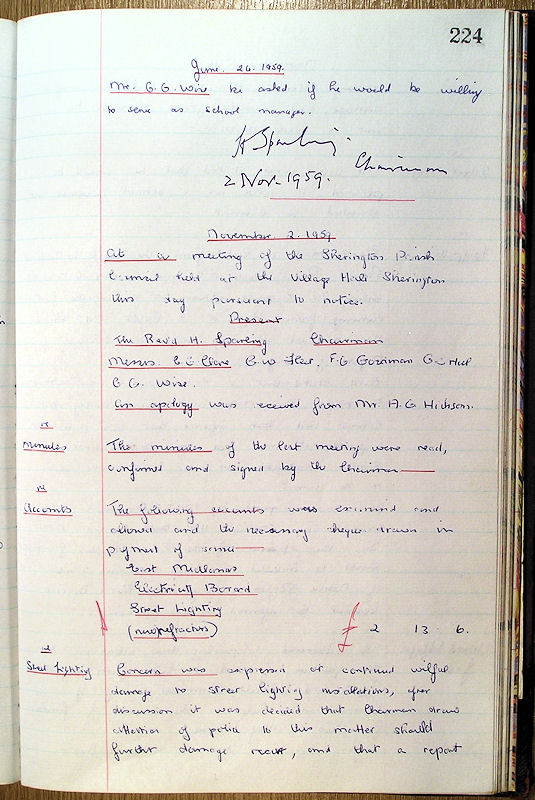 224
June. 26. 1959.
Mr. G. G. Wise be asked if he would be willing
to serve as school manager.
H Sparling.
Chairman
2 Nov. 1959.
November 2. 1959
At a meeting of the Sherington Parish
Council held at the Village Hall Sherington
this day pursuant to notice.
Present
The Rev'd H. Sparling Chairman
Messrs G.W. F.G
G. G. Wise.
An apology was received from Mr. H.G. Hickson.
re
Minutes
The minutes of the last meeting were read,
confirmed and signed by the Chairman
re
Accounts
The following accounts were examined and
allowed and the necessary cheque drawn in
payment of same
East Midlands
Electricity Board
Street Lighting
(new refractors) £ 2 13 6.
re
Street Lighting
Concern was expressed at continued wilful
damage to street lighting installations, after
discussion it was decided that Chairman draw
attention of police to this matter should
further damage recur, and that a report